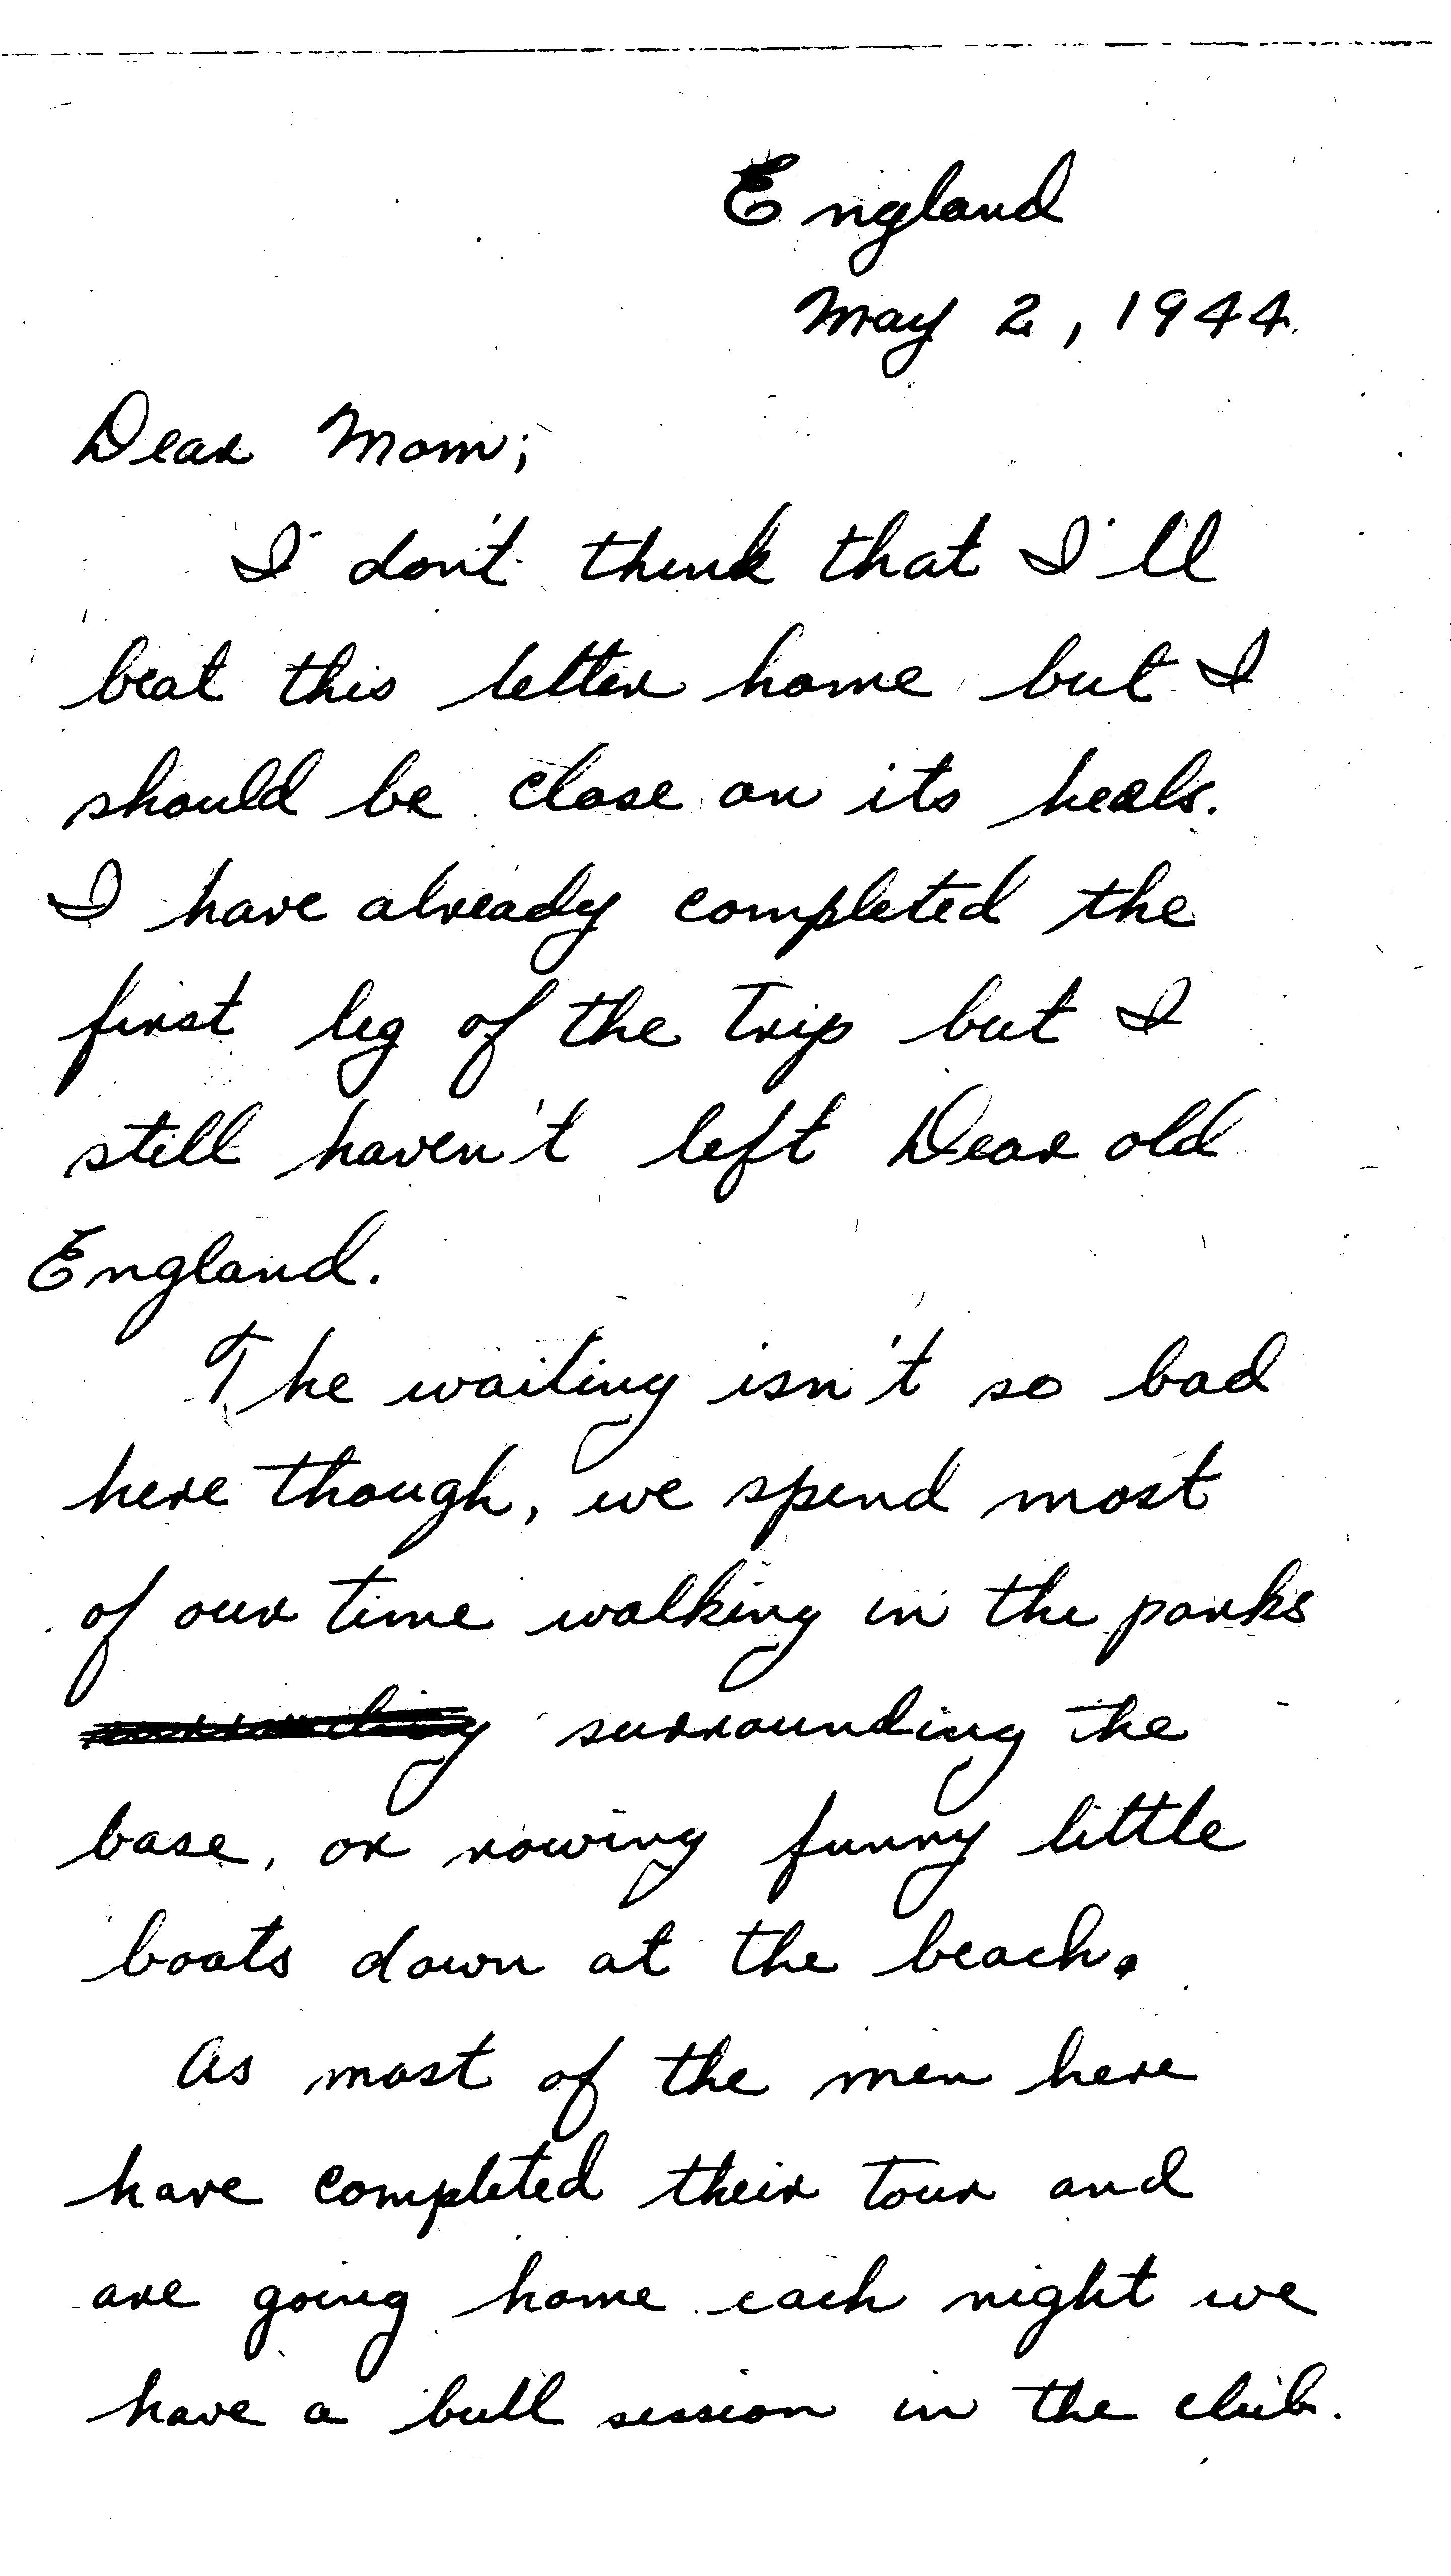 England
May 2, 1944
Dear Mom;
I don't think that I'll
beat this letter home but I
should be close on its heals.
I have already completed the
first leg of the trip but I
still haven't left Dear old
England.
The waiting isn't so bad
here though, we spend most
of our time walking in the parks
surrounding the
base, or rowing funny little
boats down at the beach.
As most of the men here
have completed their tour and
are going home each night we
have a bull session in the club.